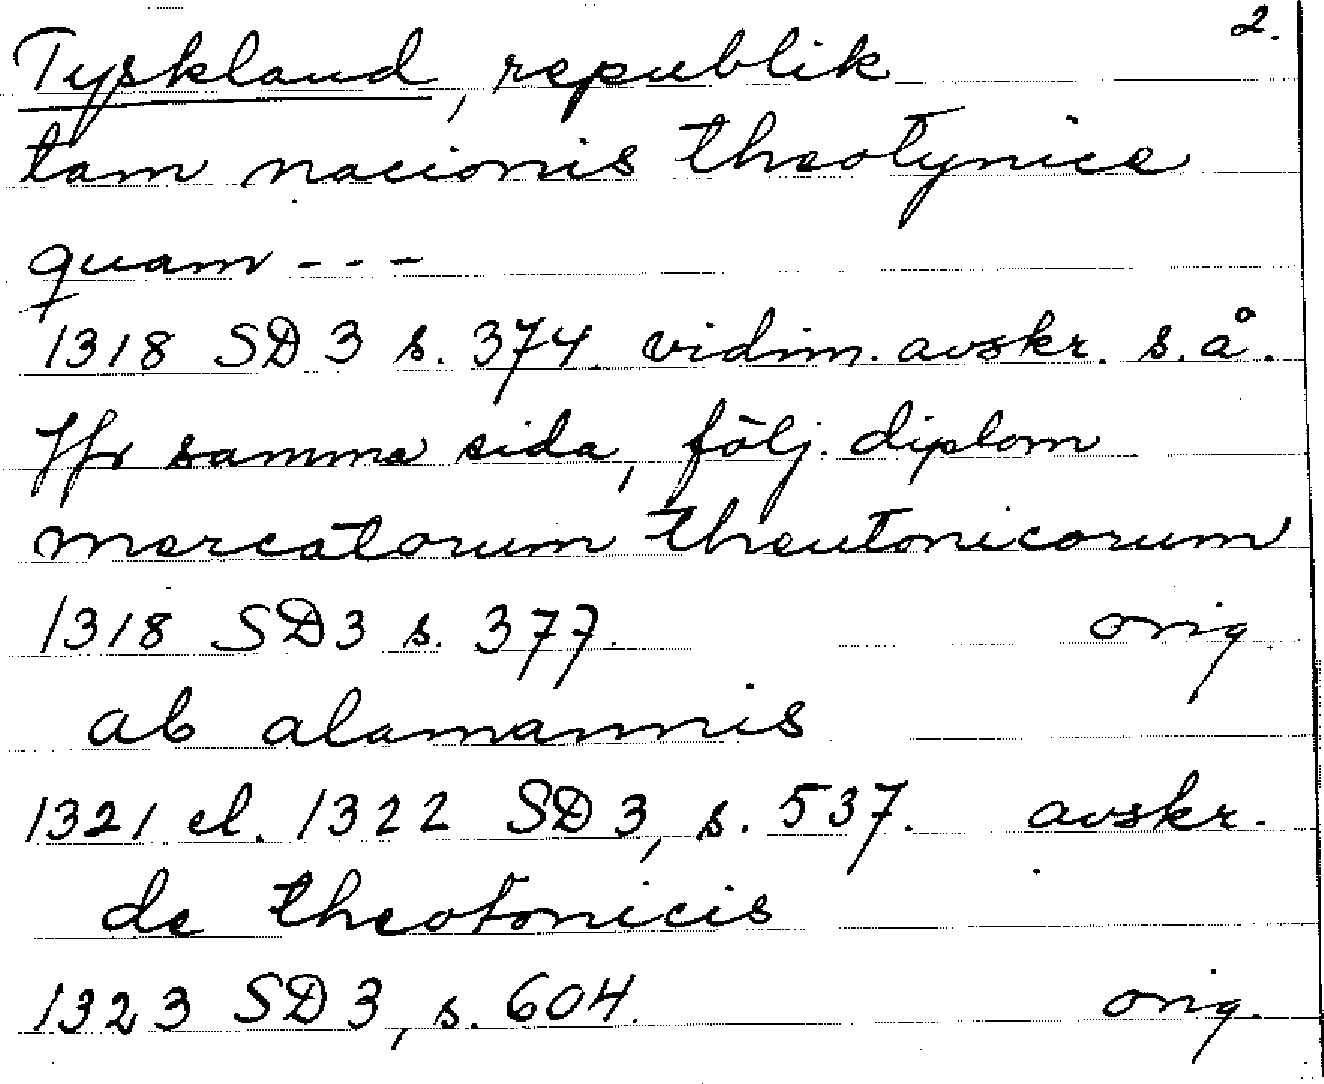 2.
Tyskland, republik
tam nacionis theotynice
quam - - -
1318 SD 3 s. 374. vidim. avskr. s.å.
Jfr samma sida, följ. diplom
mercatorum theutonicorum
1318 SD3 s. 377. orig
ab alamannis
1321 el. 1322 SD3, s. 537. avskr.
de theotonicis
1323 SD3, s. 604. orig.